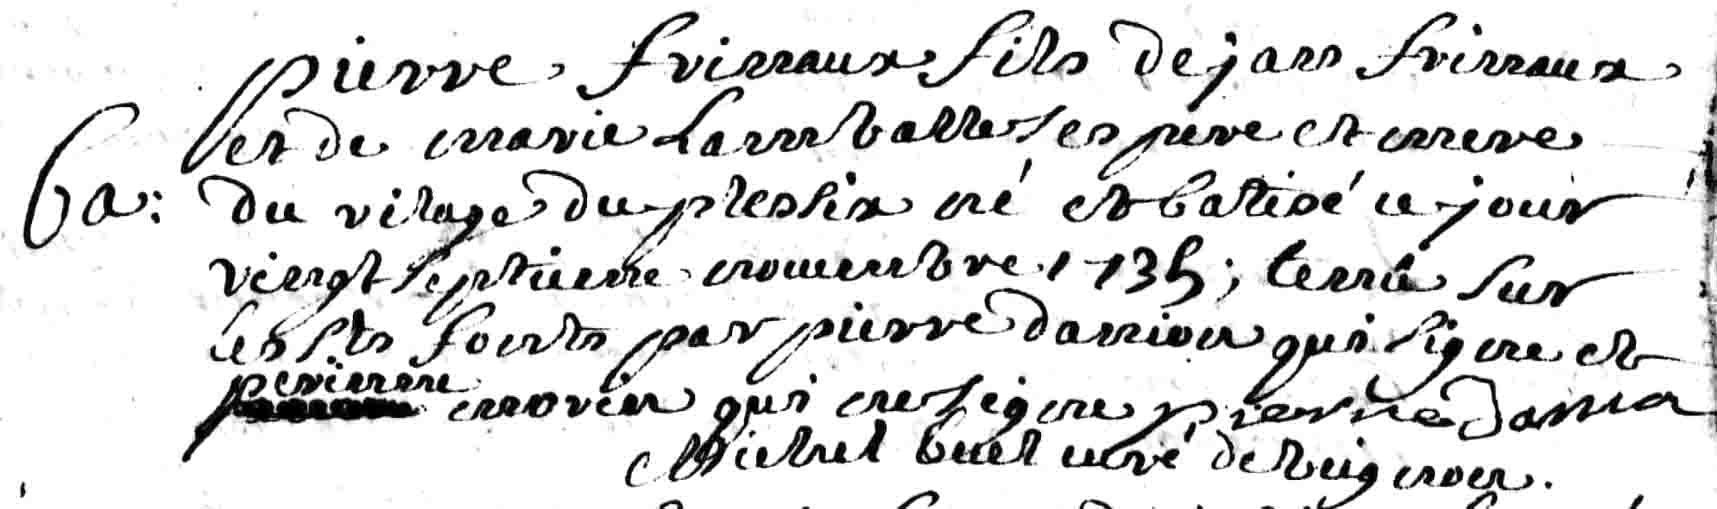 pierre frinaux fils de jan frinaux
et de marie Lamballe ses pere et mere
Ba: du vilage du plessix né et batisé ce jour
vingt septieme novembre 1735; tenu sur
les sts fonts par pierre danion qui signe et
perinne morin qui ne signe pierre danion
Michel buel curé de